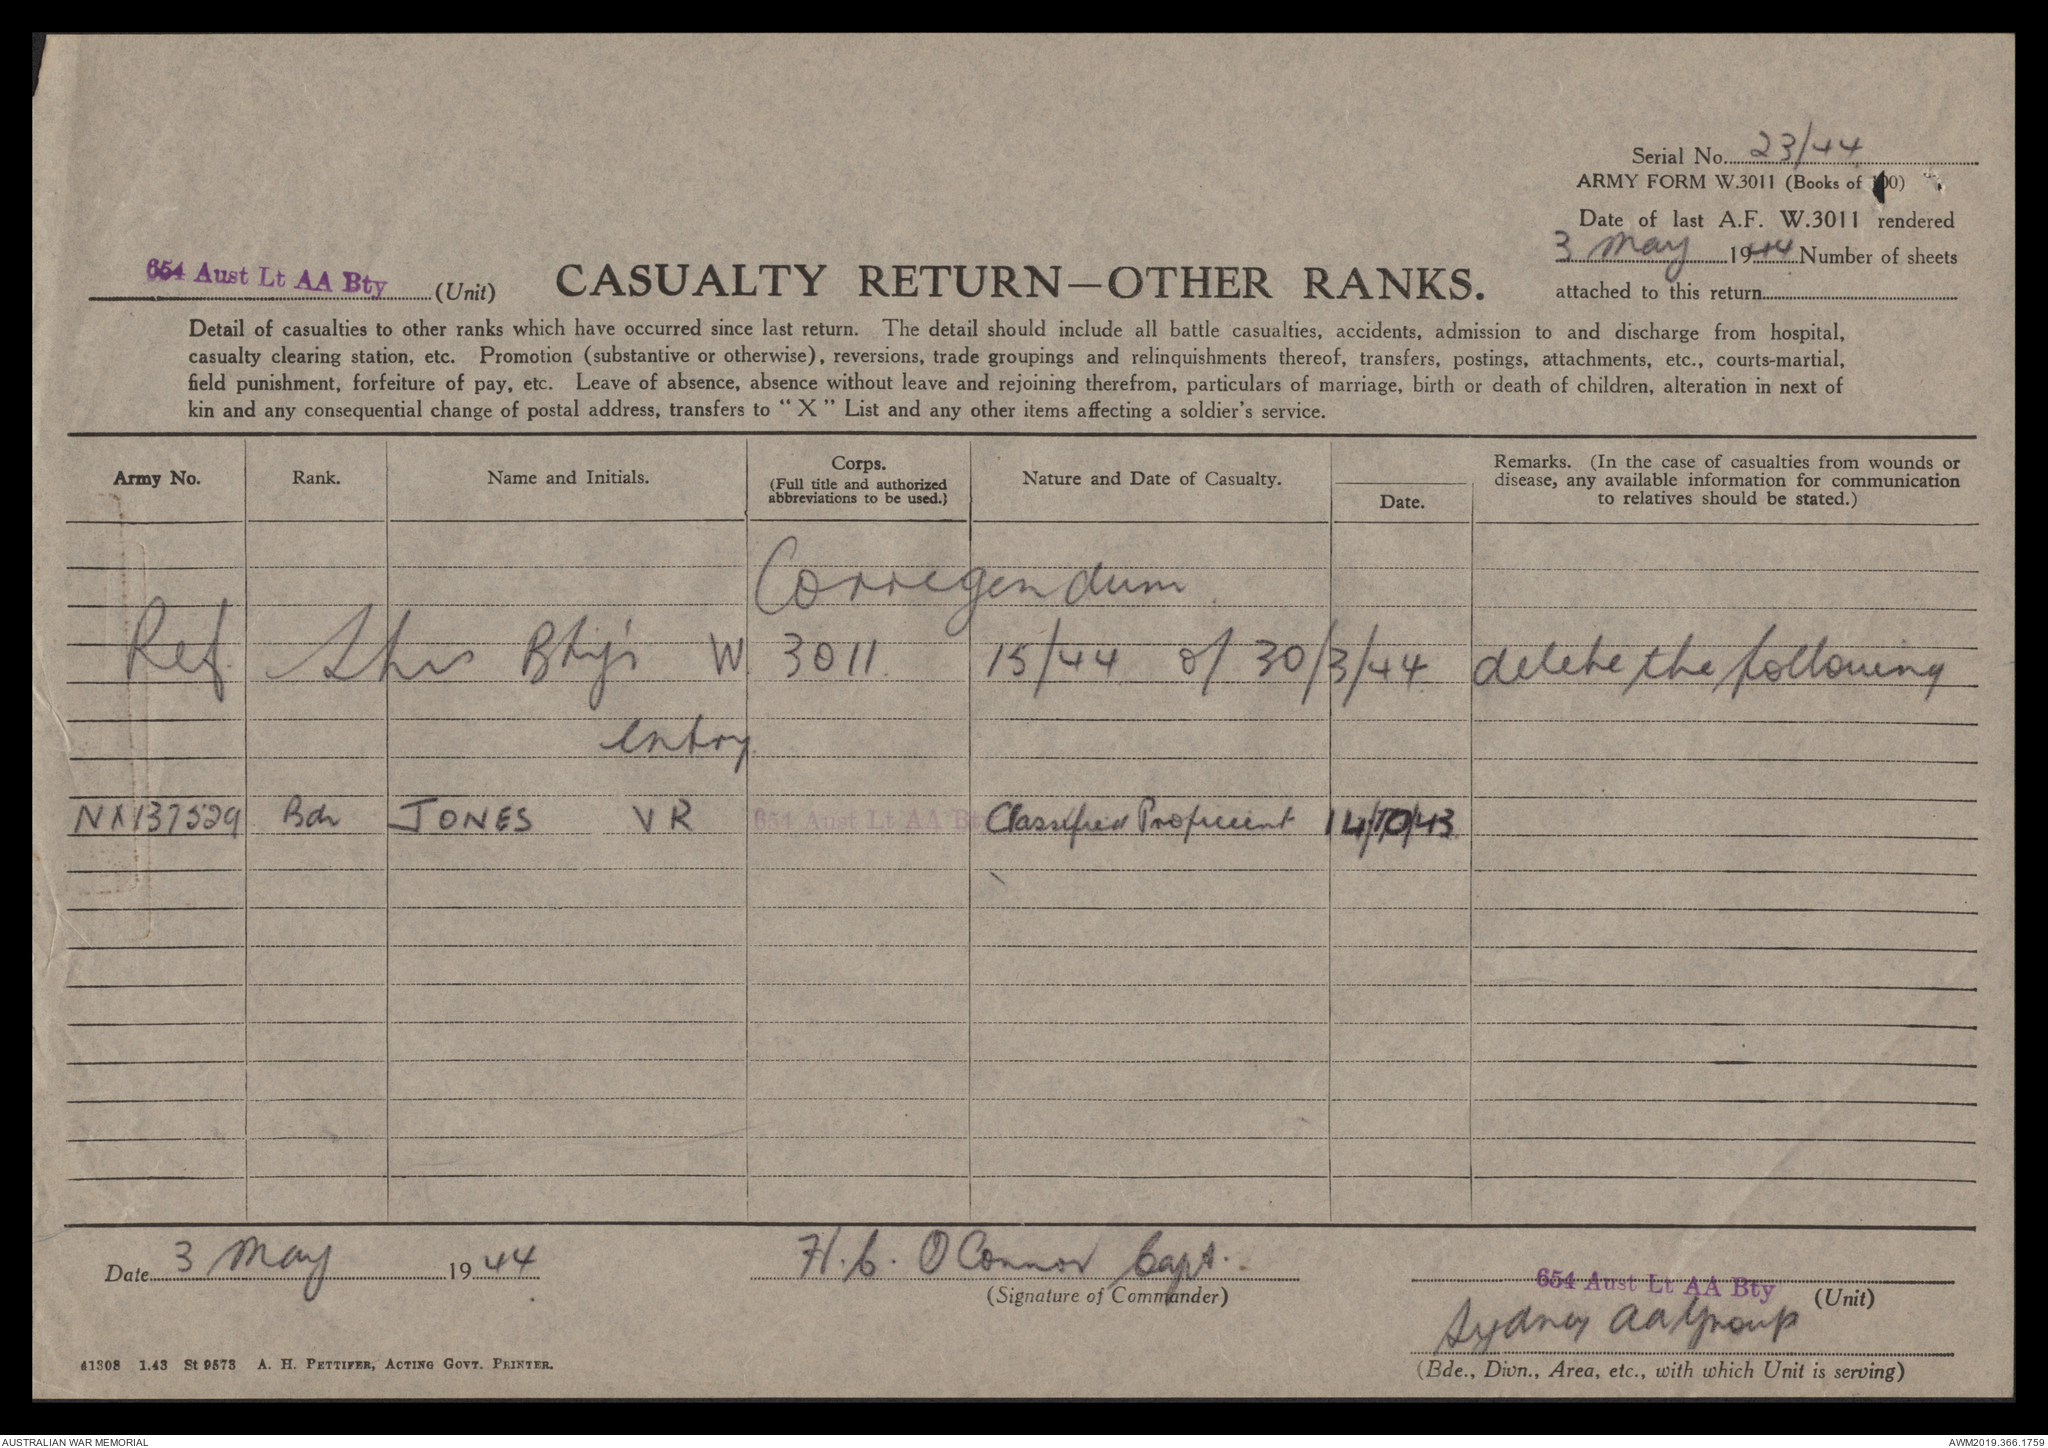 Serial No. 23/44
ARMY FORM W.3011 (Books of 100)
Date of last A.F. W.3011 rendered
3 May 1944 Number of sheets
attached to this return
654 Aust Lt AA Bty (Unit)
CASUALTY RETURN—OTHER RANKS.
Detail of casualties to other ranks which have occurred since last return. The detail should include all battle casualties, accidents, admission to and discharge from hospital,
casualty clearing station, etc. Promotion (substantive or otherwise), reversions, trade groupings and relinquishments thereof, transfers, postings, attachments, etc., courts-martial,
field punishment, forfeiture of pay, etc. Leave of absence, absence without leave and rejoining therefrom, particulars of marriage, birth or death of children, alteration in next of
kin and any consequential change of postal address, transfers to "X" List and any other items affecting a soldier's service.
Army No. Rank. Name and Initials. Corps. (Full title and authorized abbreviations to be used.) Nature and Date of Casualty. Date. Remarks. (In the case of casualties from wounds or disease, any available information for communication to relatives should be stated.)
Corregendum
Ref. this Bty's W 3011 15/44 of 30/3/44 delete the following
entry
NX137529 Bdr JONES VR 654 Aust Lt AA Bty Classified Proficient 14/10/43
Date 3 May 1944
H.C. O'Connor Capt.
(Signature of Commander)
654 Aust Lt AA Bty (Unit)
Sydney AA Group
(Bde., Divn., Area, etc., with which Unit is serving)
41308 1.43 St 9573 A. H. PETTIFER, ACTING GOVT. PRINTER.
AUSTRALIAN WAR MEMORIAL
AWM2019.366.1759